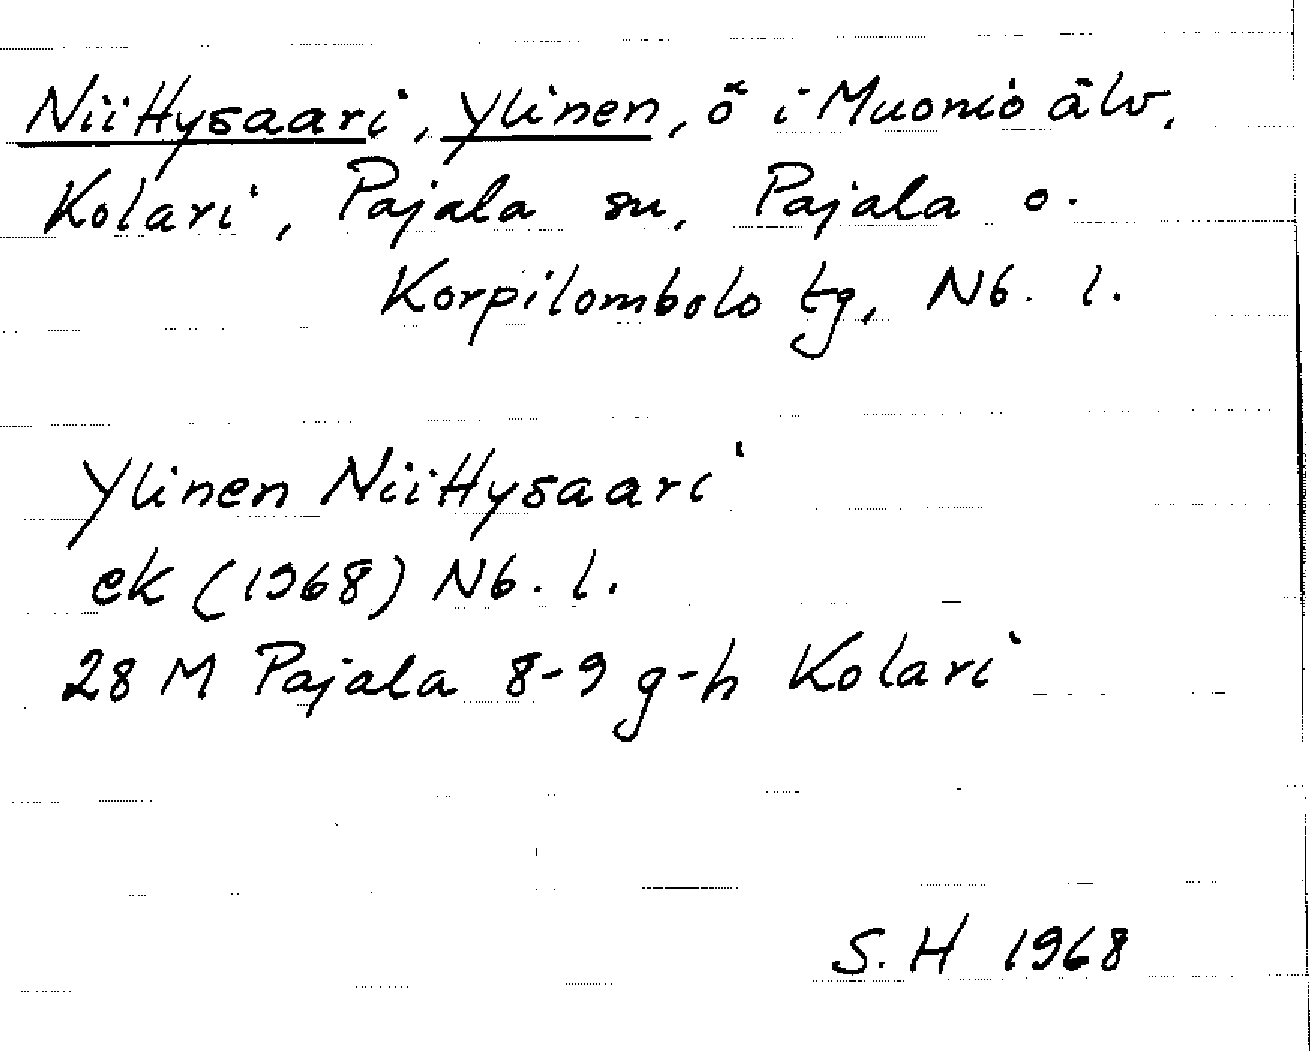 Niittysaari, Ylinen, ö i Muonio älv,
Kolari, Pajala sn, Pajala o.
Korpilombolo tg, Nb. l.
Ylinen Niittysaari
ek (1968) Nb. l.
28 M Pajala 8-9 g-h Kolari
S. H 1968